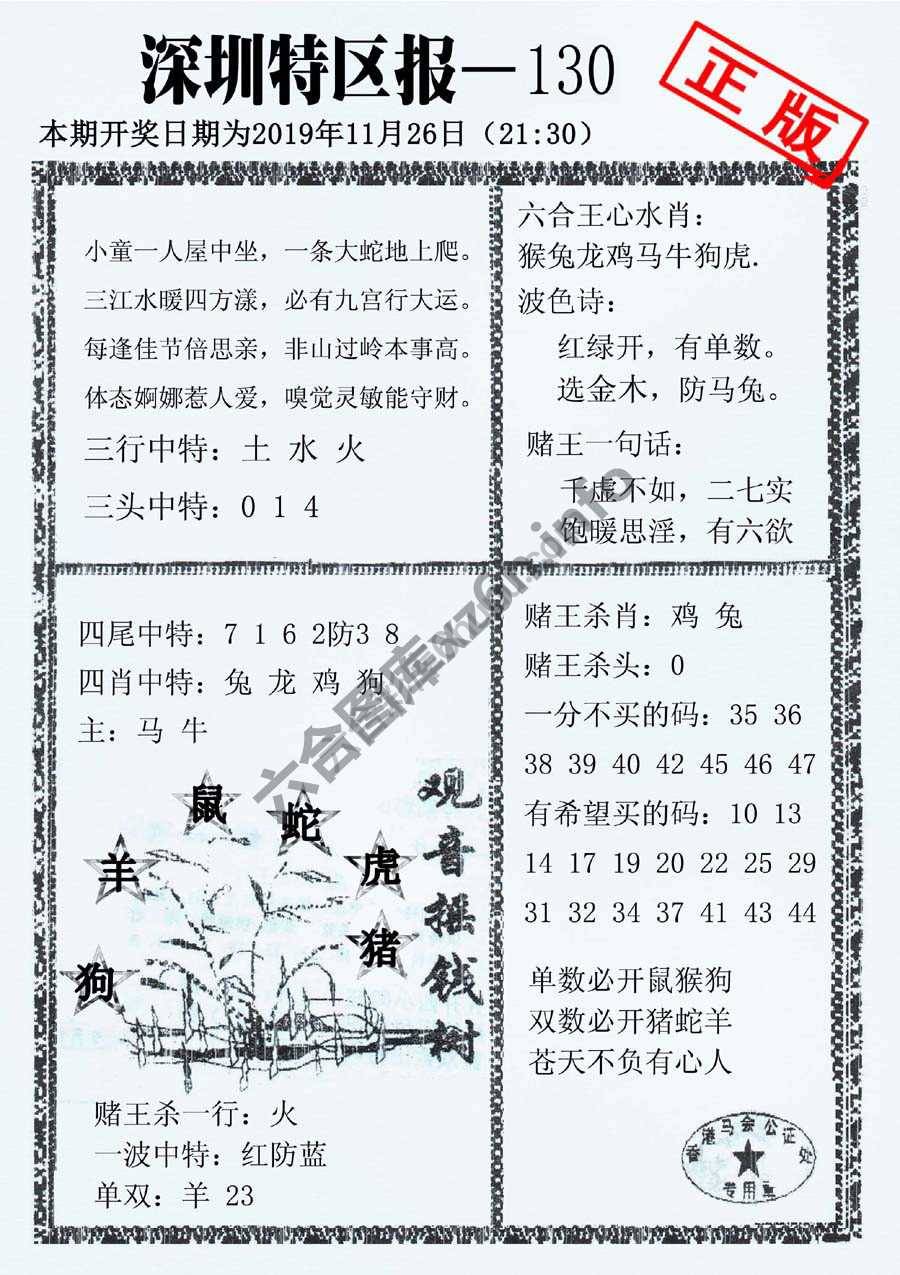 深圳特区报—130
正版
本期开奖日期为2019年11月26日（21:30）
小童一人屋中坐，一条大蛇地上爬。
三江水暖四方漾，必有九宫行大运。
每逢佳节倍思亲，非山过岭本事高。
体态婀娜惹人爱，嗅觉灵敏能守财。
三行中特：土 水 火
三头中特：0 1 4
六合王心水肖：
猴兔龙鸡马牛狗虎.
波色诗：
红绿开，有单数。
选金木，防马兔。
赌王一句话：
千虚不如，二七实
饱暖思淫，有六欲
四尾中特：7 1 6 2防3 8
四肖中特：兔 龙 鸡 狗
主：马 牛
鼠
蛇
羊
虎
猪
狗
观音摇钱树
赌王杀一行：火
一波中特：红防蓝
单双：羊 23
赌王杀肖：鸡 兔
赌王杀头：0
一分不买的码：35 36
38 39 40 42 45 46 47
有希望买的码：10 13
14 17 19 20 22 25 29
31 32 34 37 41 43 44
单数必开鼠猴狗
双数必开猪蛇羊
苍天不负有心人
香港马会公证处
专用章
六合图库xz6h.info